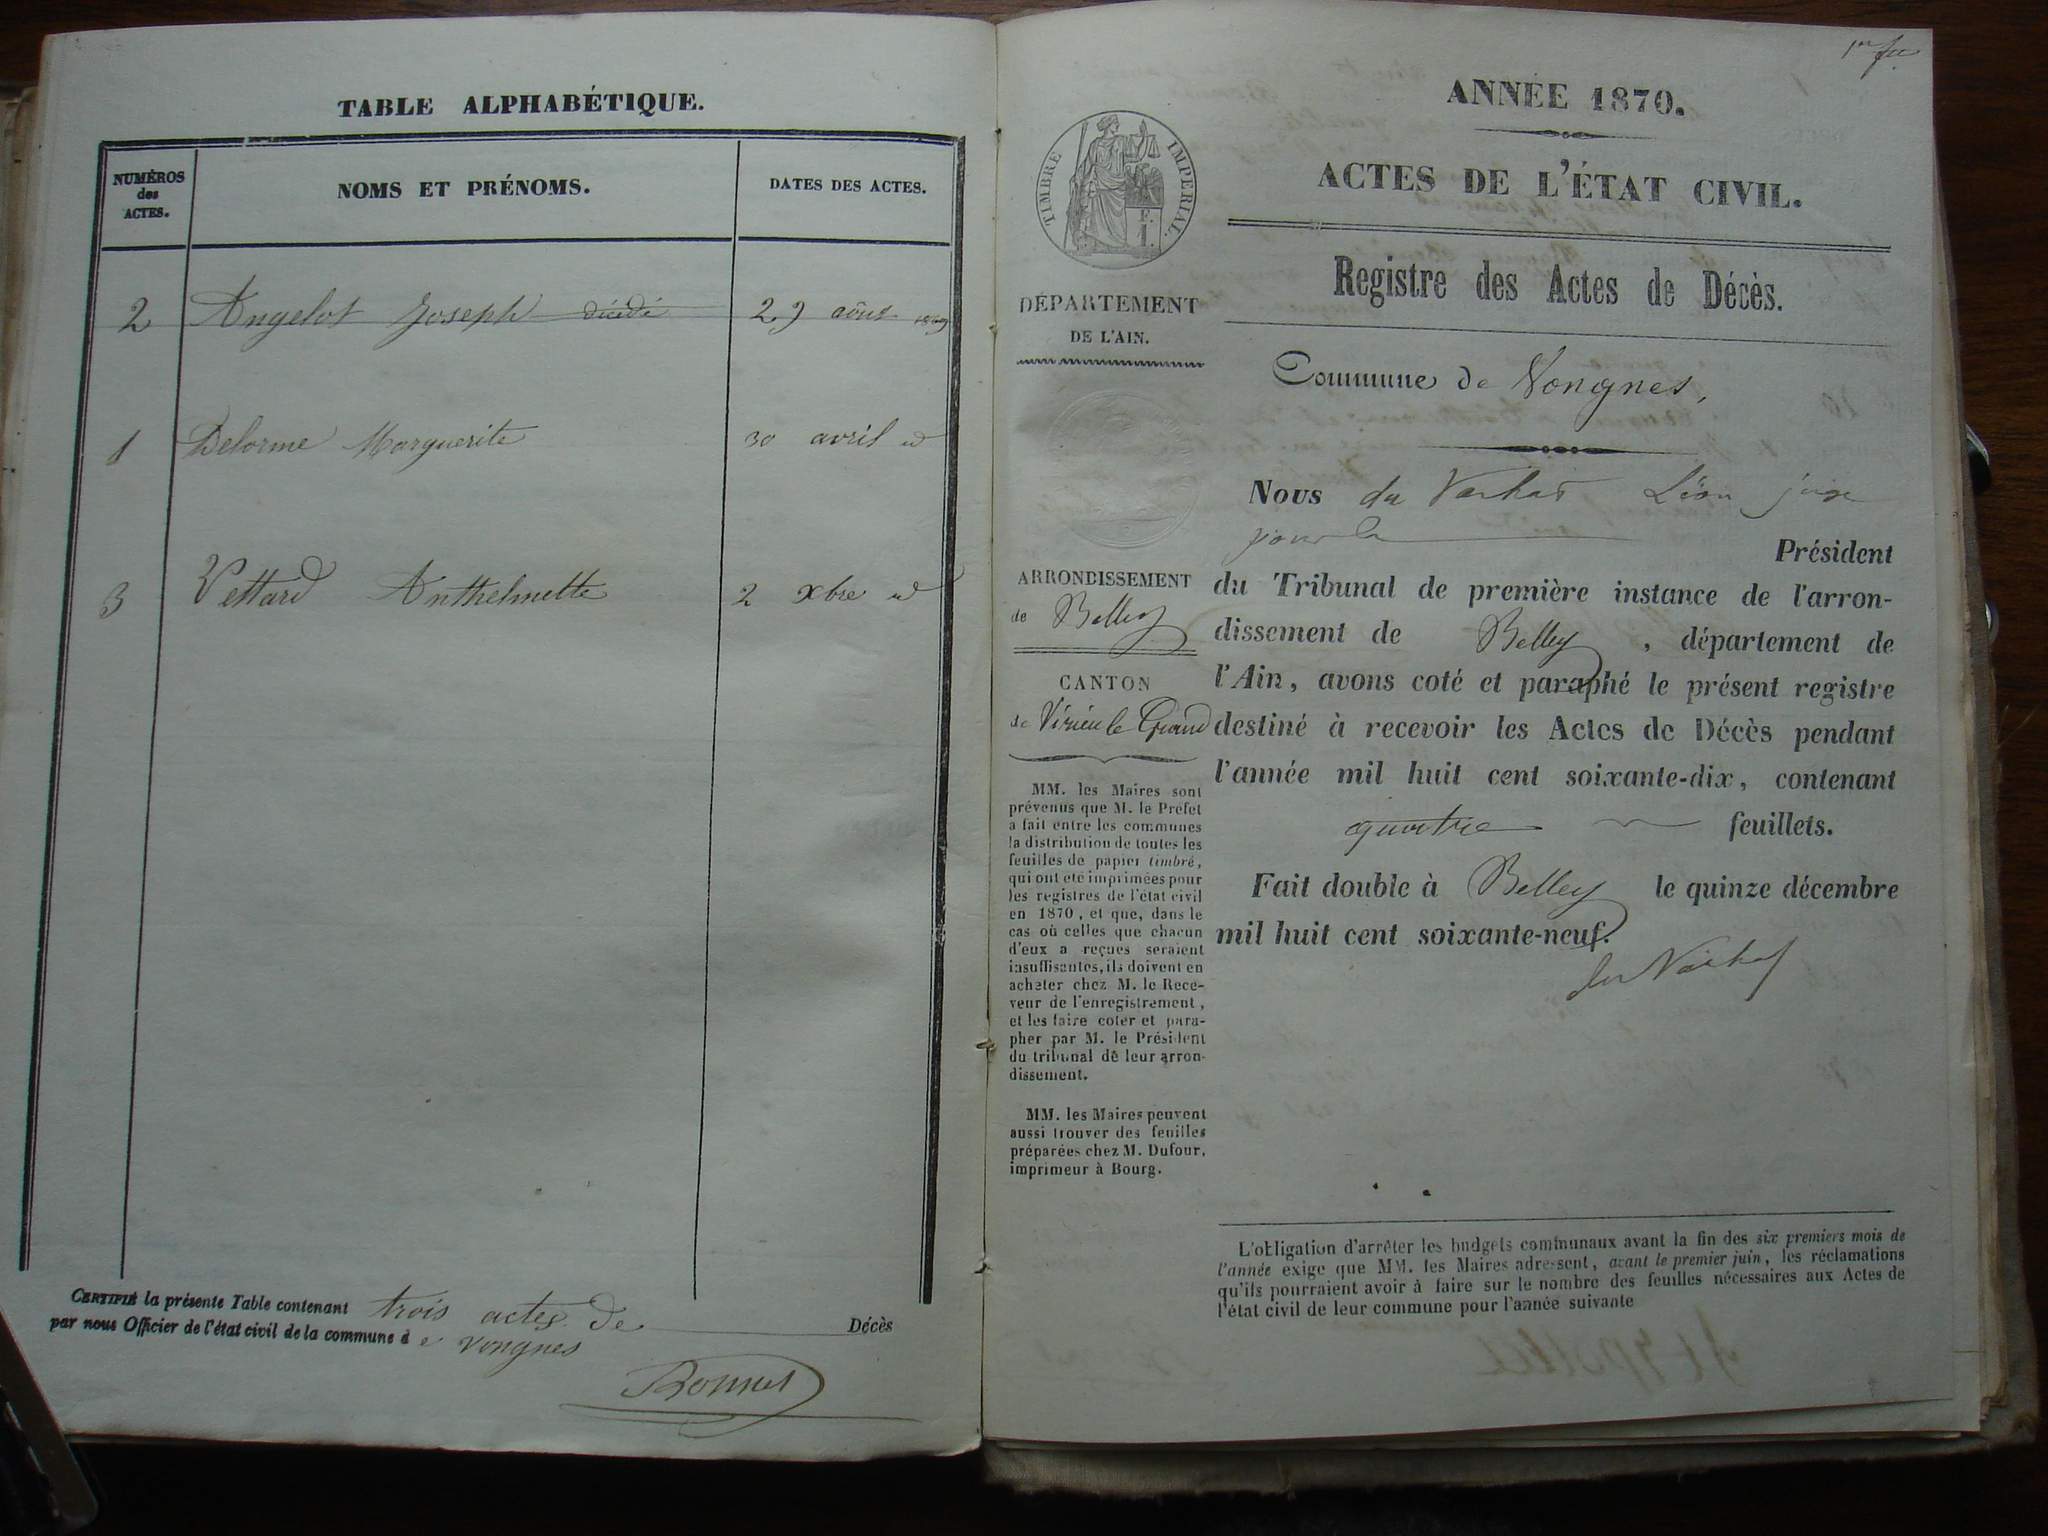 TABLE ALPHABÉTIQUE.
NUMÉROS
des
ACTES.
NOMS ET PRÉNOMS.
DATES DES ACTES.
2 Angelot Joseph décédé 29 août 1869
1 Delorme Marguerite 30 avril id
3 Vettard Anthelmette 2 xbre id
CERTIFIÉ la présente Table contenant trois actes de Décès
par nous Officier de l'état civil de la commune de Vongnes
Bonnet
1er fet
ANNÉE 1870.
ACTES DE L'ÉTAT CIVIL.
Registre des Actes de Décès.
Commune de Vongnes,
TIMBRE IMPÉRIAL.
DÉPARTEMENT
DE L'AIN.
ARRONDISSEMENT
de Belley
CANTON
de Virieu le Grand
MM. les Maires sont
prévenus que M. le Préfet
a fait entre les communes
la distribution de toutes les
feuilles de papier timbré,
qui ont été imprimées pour
les registres de l'état civil
en 1870, et que, dans le
cas où celles que chacun
d'eux a reçues seraient
insuffisantes, ils doivent en
acheter chez M. le Rece-
veur de l'enregistrement,
et les faire coter et para-
pher par M. le Président
du tribunal de leur arron-
dissement.
MM. les Maires peuvent
aussi trouver des feuilles
préparées chez M. Dufour,
imprimeur à Bourg.
Nous du Léon juge
pour le Président
du Tribunal de première instance de l'arron-
dissement de Belley, département de
l'Ain, avons coté et paraphé le présent registre
destiné à recevoir les Actes de Décès pendant
l'année mil huit cent soixante-dix, contenant
quatre feuillets.
Fait double à Belley le quinze décembre
mil huit cent soixante-neuf.
L'obligation d'arrêter les budgets communaux avant la fin des six premiers mois de
l'année exige que MM. les Maires adressent, avant le premier juin, les réclamations
qu'ils pourraient avoir à faire sur le nombre des feuilles nécessaires aux Actes de
l'état civil de leur commune pour l'année suivante